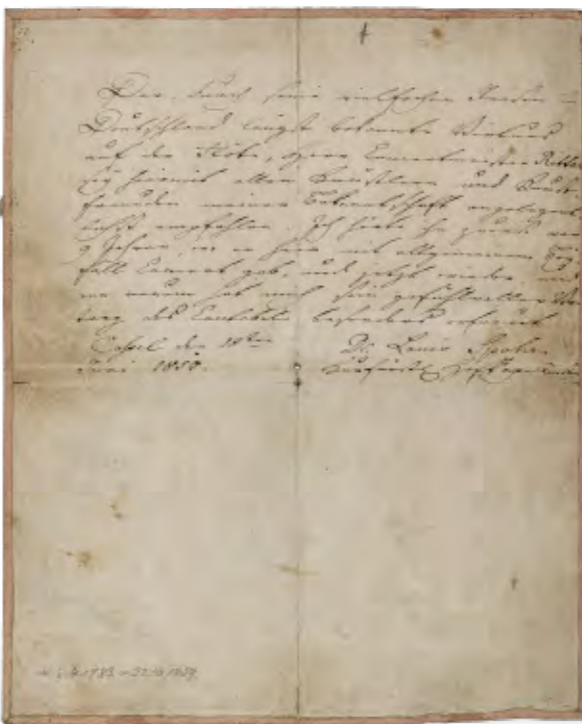 Der, durch seine vielfachen Reisen in
Deutschland längst bekannte Virtuos
auf der Flöte, Herr Concertmeister Ritter
sey hiermit allen Künstlern und Kunst
freunden meiner Bekanntschaft angelegent
lichst empfohlen. Ich hörte ihn zuerst vor
9 Jahren, wo er hier mit allgemeinem Bey
fall Concert gab, und jetzt wieder, und
von neuem hat mich sein gefühlvoller Vor
trag des Cantabile besonders erfreut.
Cassel den 18ten Dr. Louis Spohr
Juni 1850. Kurfürstl.